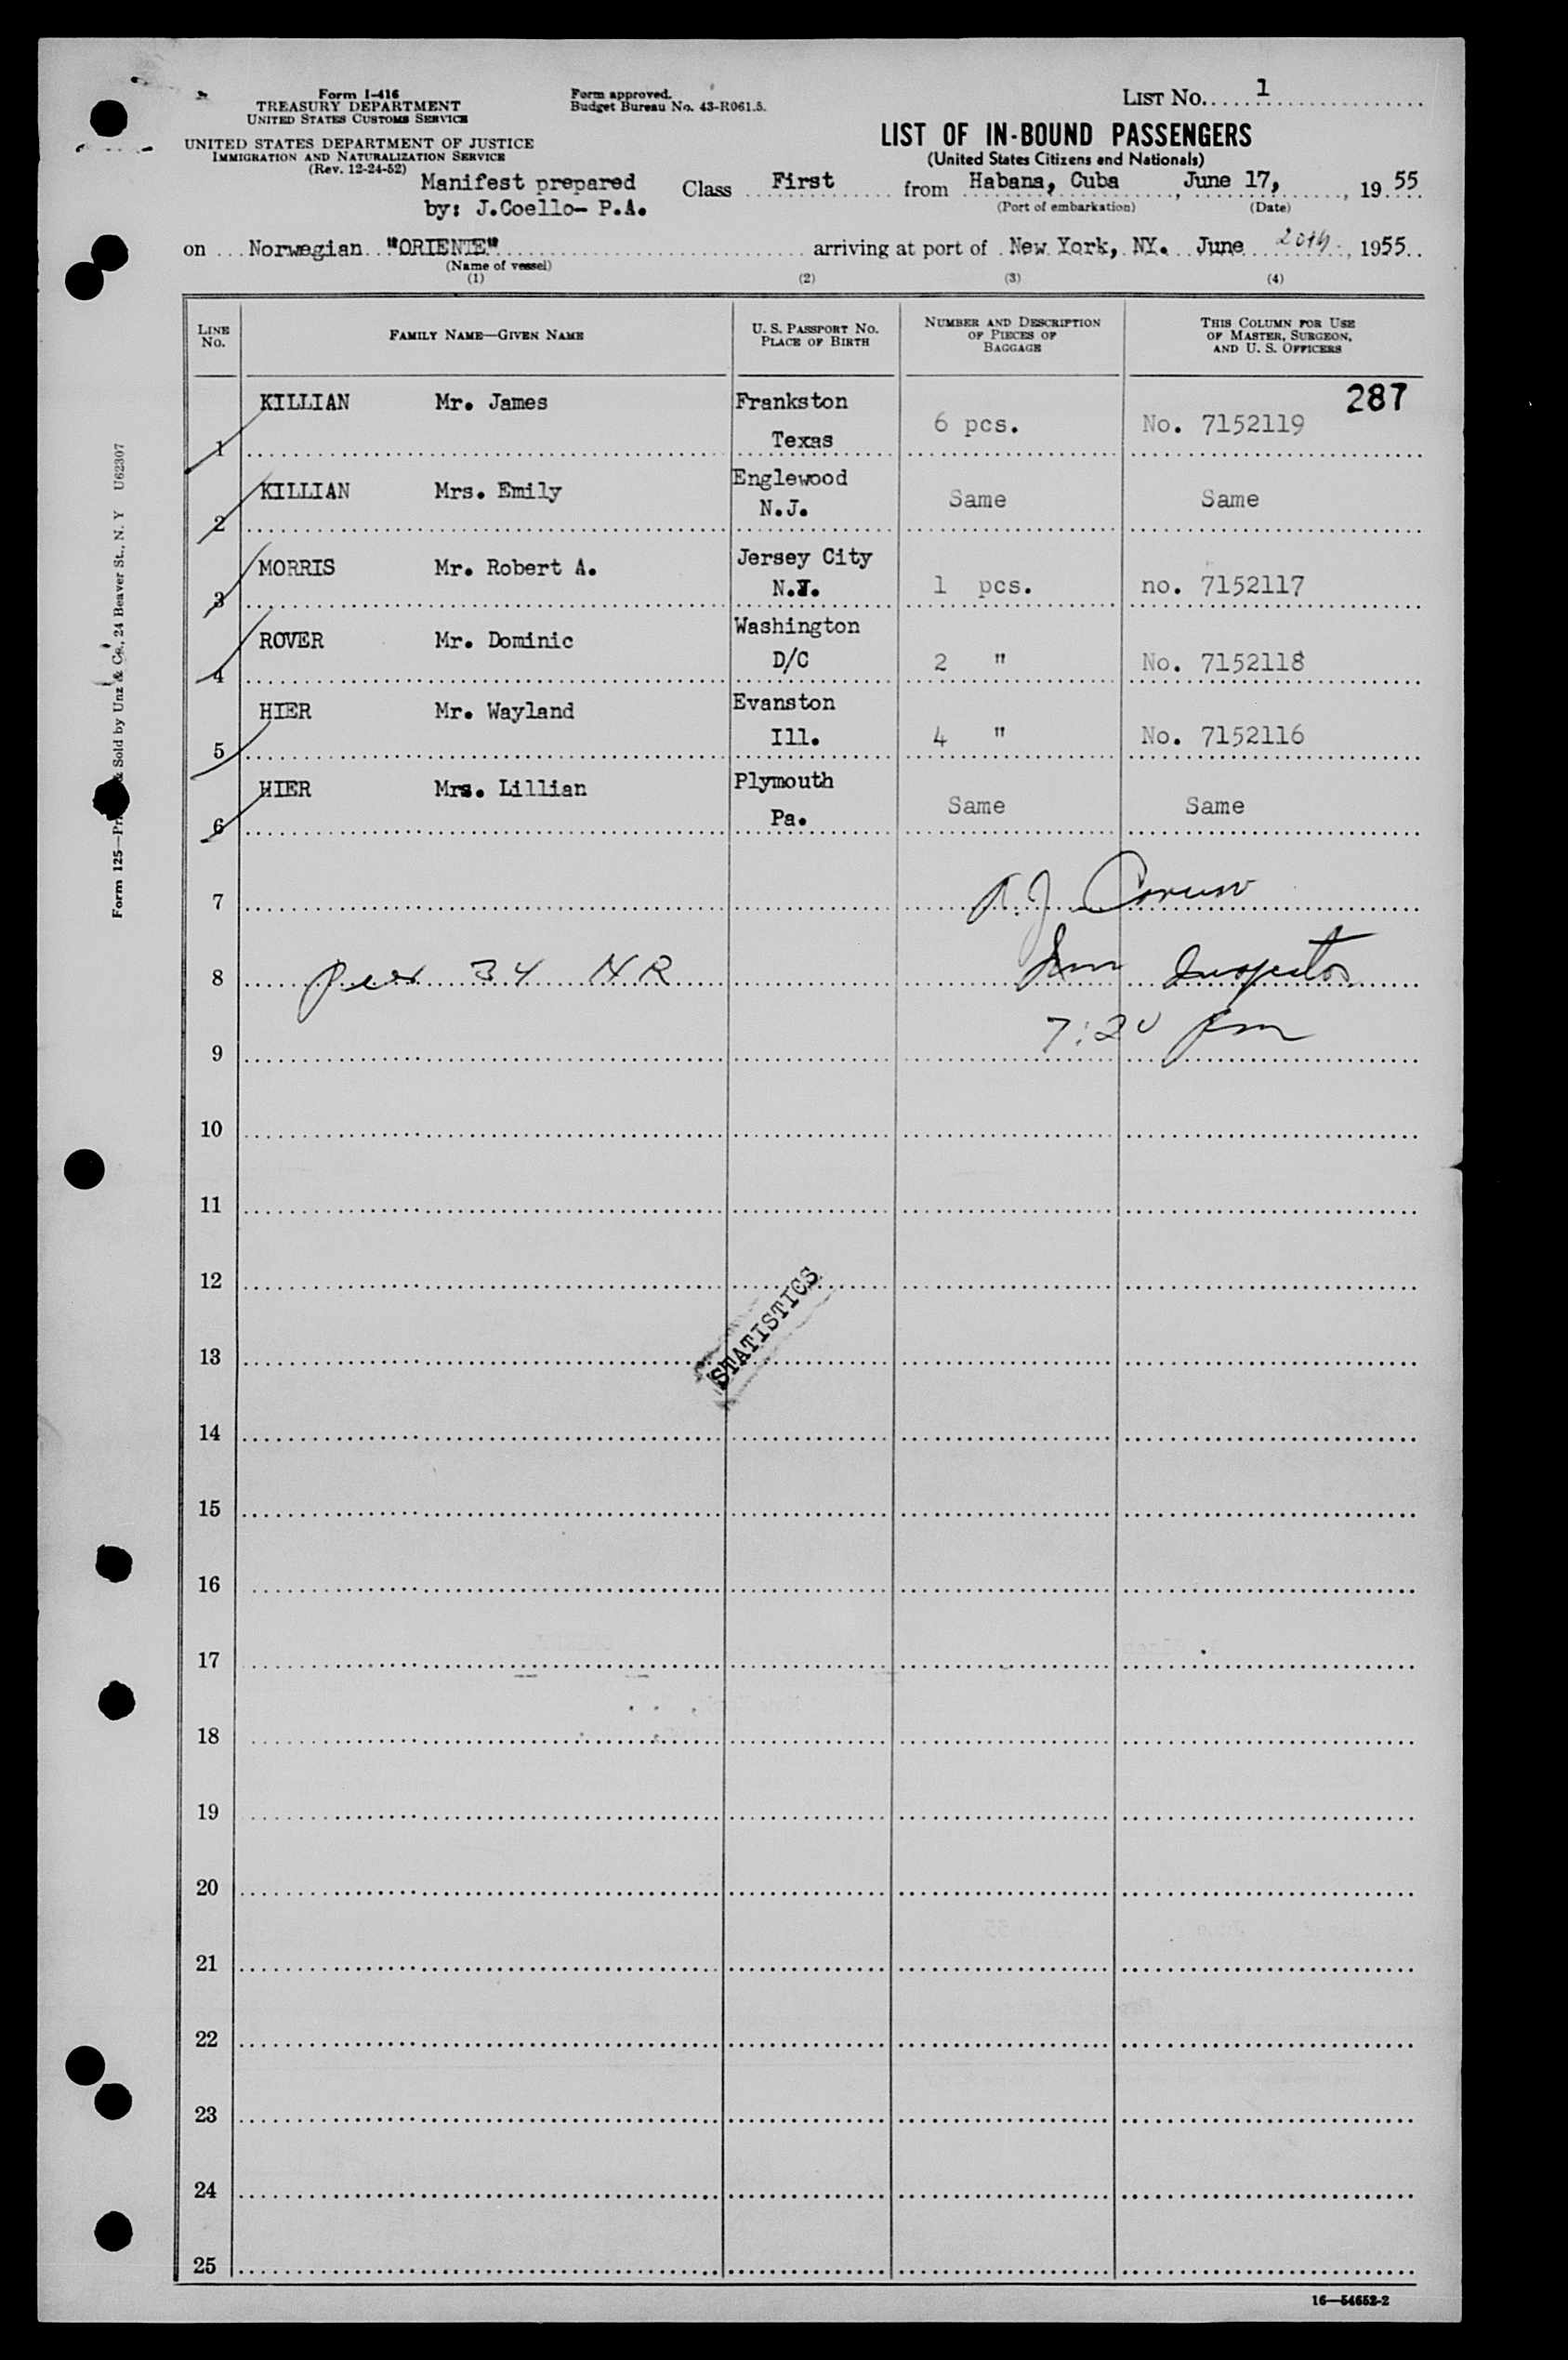 Form I-416
TREASURY DEPARTMENT
UNITED STATES CUSTOMS SERVICE
UNITED STATES DEPARTMENT OF JUSTICE
IMMIGRATION AND NATURALIZATION SERVICE
(Rev. 12-24-52)
Form approved.
Budget Bureau No. 43-R061.5.
LIST No. 1
LIST OF IN-BOUND PASSENGERS
(United States Citizens and Nationals)
Manifest prepared
by: J.Coello- P.A.
Class First from Habana, Cuba, June 17, 1955
(Port of embarkation) (Date)
on Norwegian "ORIENTE" arriving at port of New York, NY. June 20th, 1955
(Name of vessel)
(1) (2) (3) (4)
LINE No. FAMILY NAME—GIVEN NAME U. S. PASSPORT No. PLACE OF BIRTH NUMBER AND DESCRIPTION OF PIECES OF BAGGAGE THIS COLUMN FOR USE OF MASTER, SURGEON, AND U. S. OFFICERS
287
1 KILLIAN Mr. James Frankston Texas 6 pcs. No. 7152119
2 KILLIAN Mrs. Emily Englewood N.J. Same Same
3 MORRIS Mr. Robert A. Jersey City N.J. 1 pcs. no. 7152117
4 ROVER Mr. Dominic Washington D/C 2 " No. 7152118
5 HIER Mr. Wayland Evanston Ill. 4 " No. 7152116
6 HIER Mrs. Lillian Plymouth Pa. Same Same
7
8 Pier 34 NR Imm Inspector
7:20 pm
9
10
11
12
STATISTICS
13
14
15
16
17
18
19
20
21
22
23
24
25
16—54652-2
Form 125—Pr & Sold by Unz & Co., 24 Beaver St., N. Y U62307